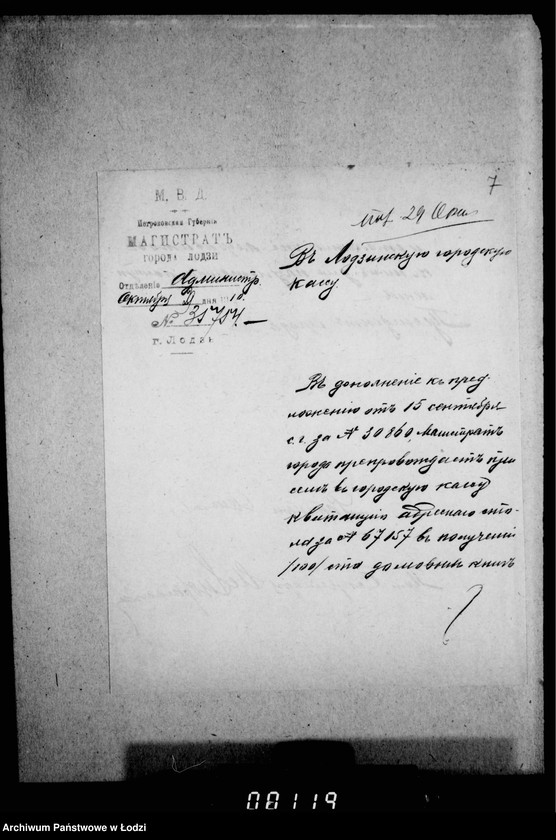 7
М. В. Д.
Петроковская Губернія
МАГИСТРАТЪ
ГОРОДА ЛОДЗИ
Отдѣленіе Администр.
Октября дня 1910.
№ 35754
г. Лодзь
29 Окт.
Въ Лодзинскую городскую
кассу
Въ дополненіе къ пред-
ложенію отъ 15 сентября
с. г. за № 30860, Магистратъ
города препровождаетъ при
семъ въ городскую кассу
квитанцію адреснаго сто-
ла за № 67157 въ полученіи
/100/ ста домовыхъ книгъ
Archiwum Państwowe w Łodzi
08119